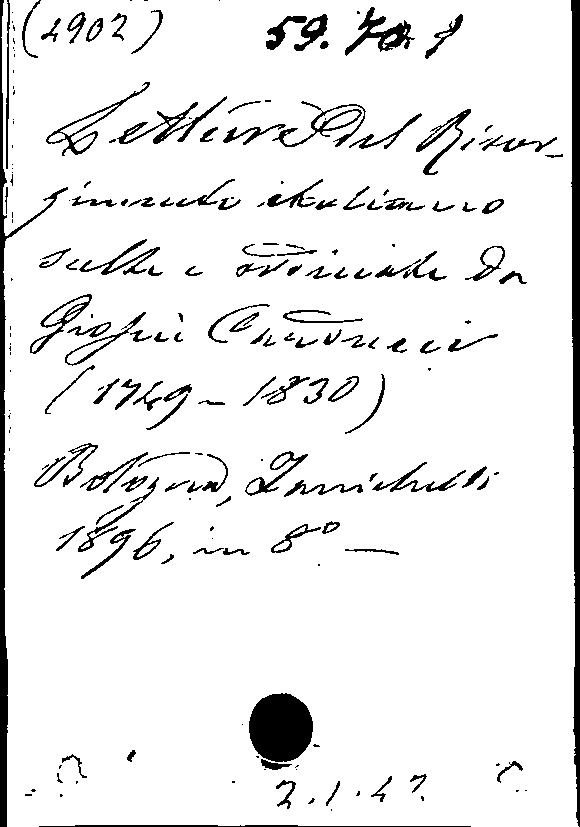 (1902) 59.70.9
Letture del Risor-
gimento italiano
scelte e ordinate da
Giosuè Carducci
(1749-1830)
Bologna, Zanichelli
1896, in 8° —
2.1.47.